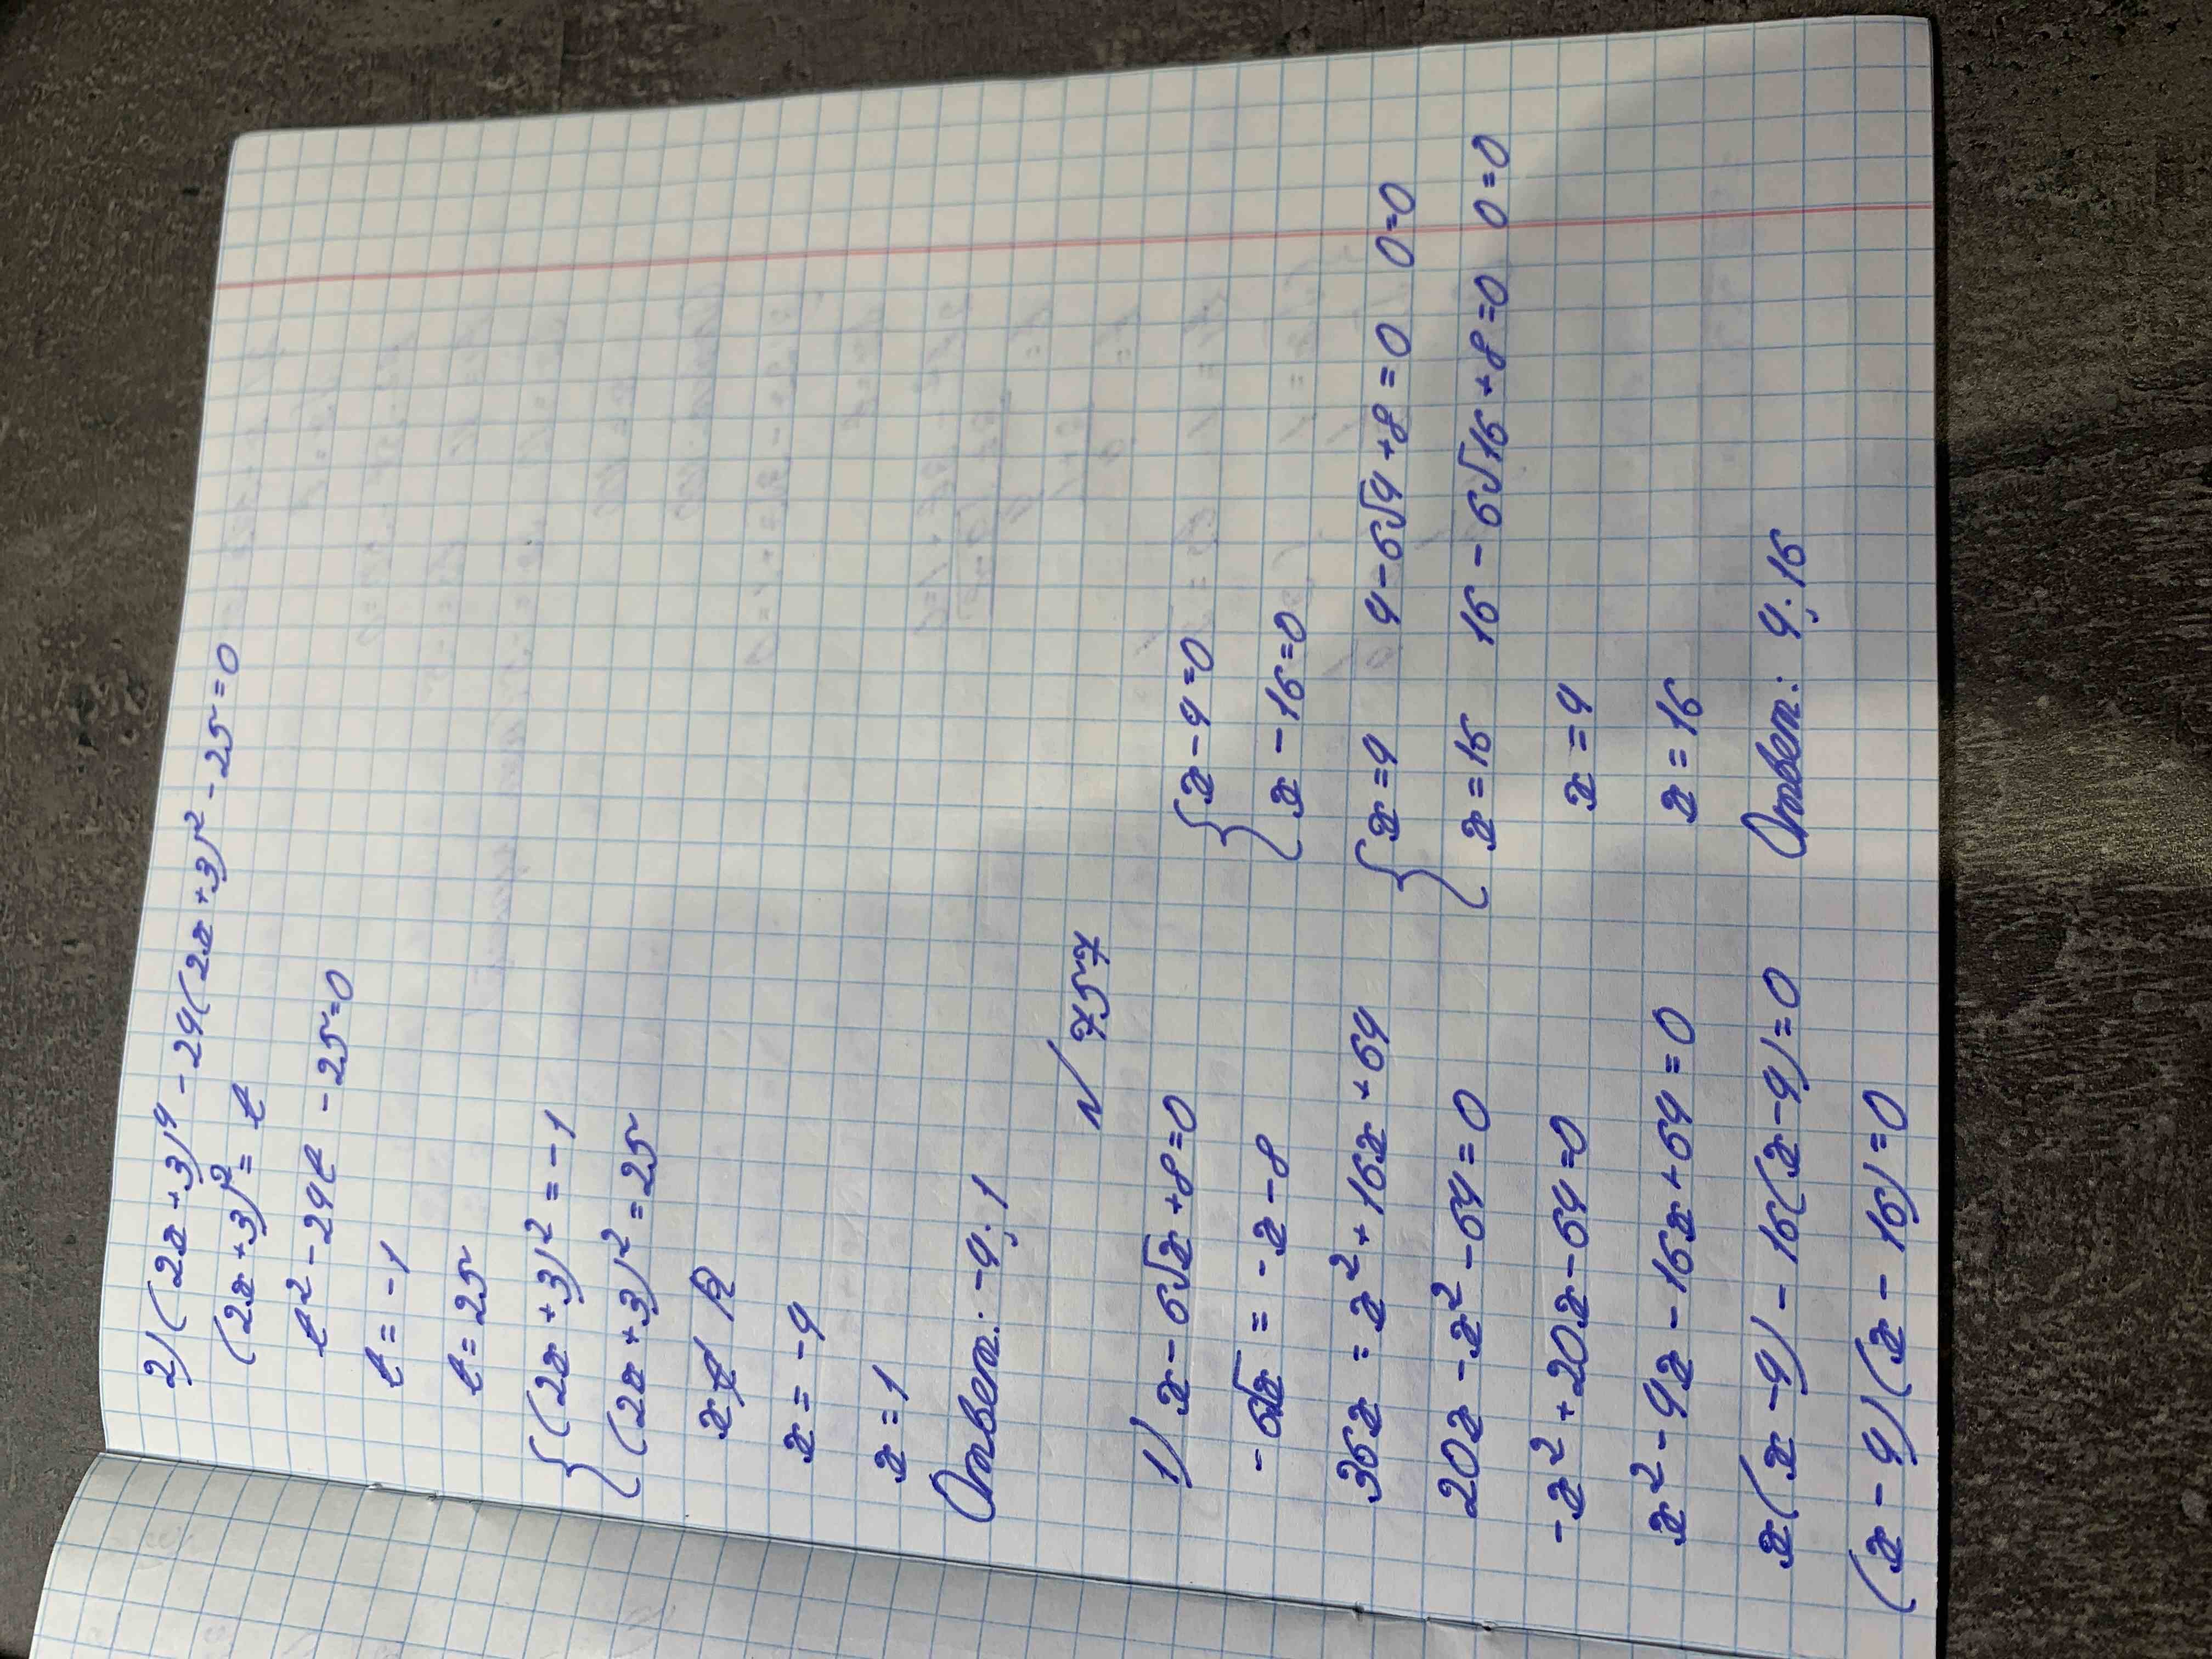 2) (2x+3)⁴ - 24(2x+3)² - 25 = 0
(2x+3)² = t
t² - 24t - 25 = 0
t = -1
t = 25
{ (2x+3)² = -1
(2x+3)² = 25
x ∉ R
x = -4
x = 1
Ответ: -4; 1
N 757
1) x - 6√x + 8 = 0
-6√x = -x - 8
36x = x² + 16x + 64
20x - x² - 64 = 0
-x² + 20x - 64 = 0
x² - 4x - 16x + 64 = 0
x(x - 4) - 16(x - 4) = 0
(x - 4)(x - 16) = 0
{ x - 4 = 0
x - 16 = 0
{ x = 4 4 - 6√4 + 8 = 0 0 = 0
x = 16 16 - 6√16 + 8 = 0 0 = 0
x = 4
x = 16
Ответ: 4; 16